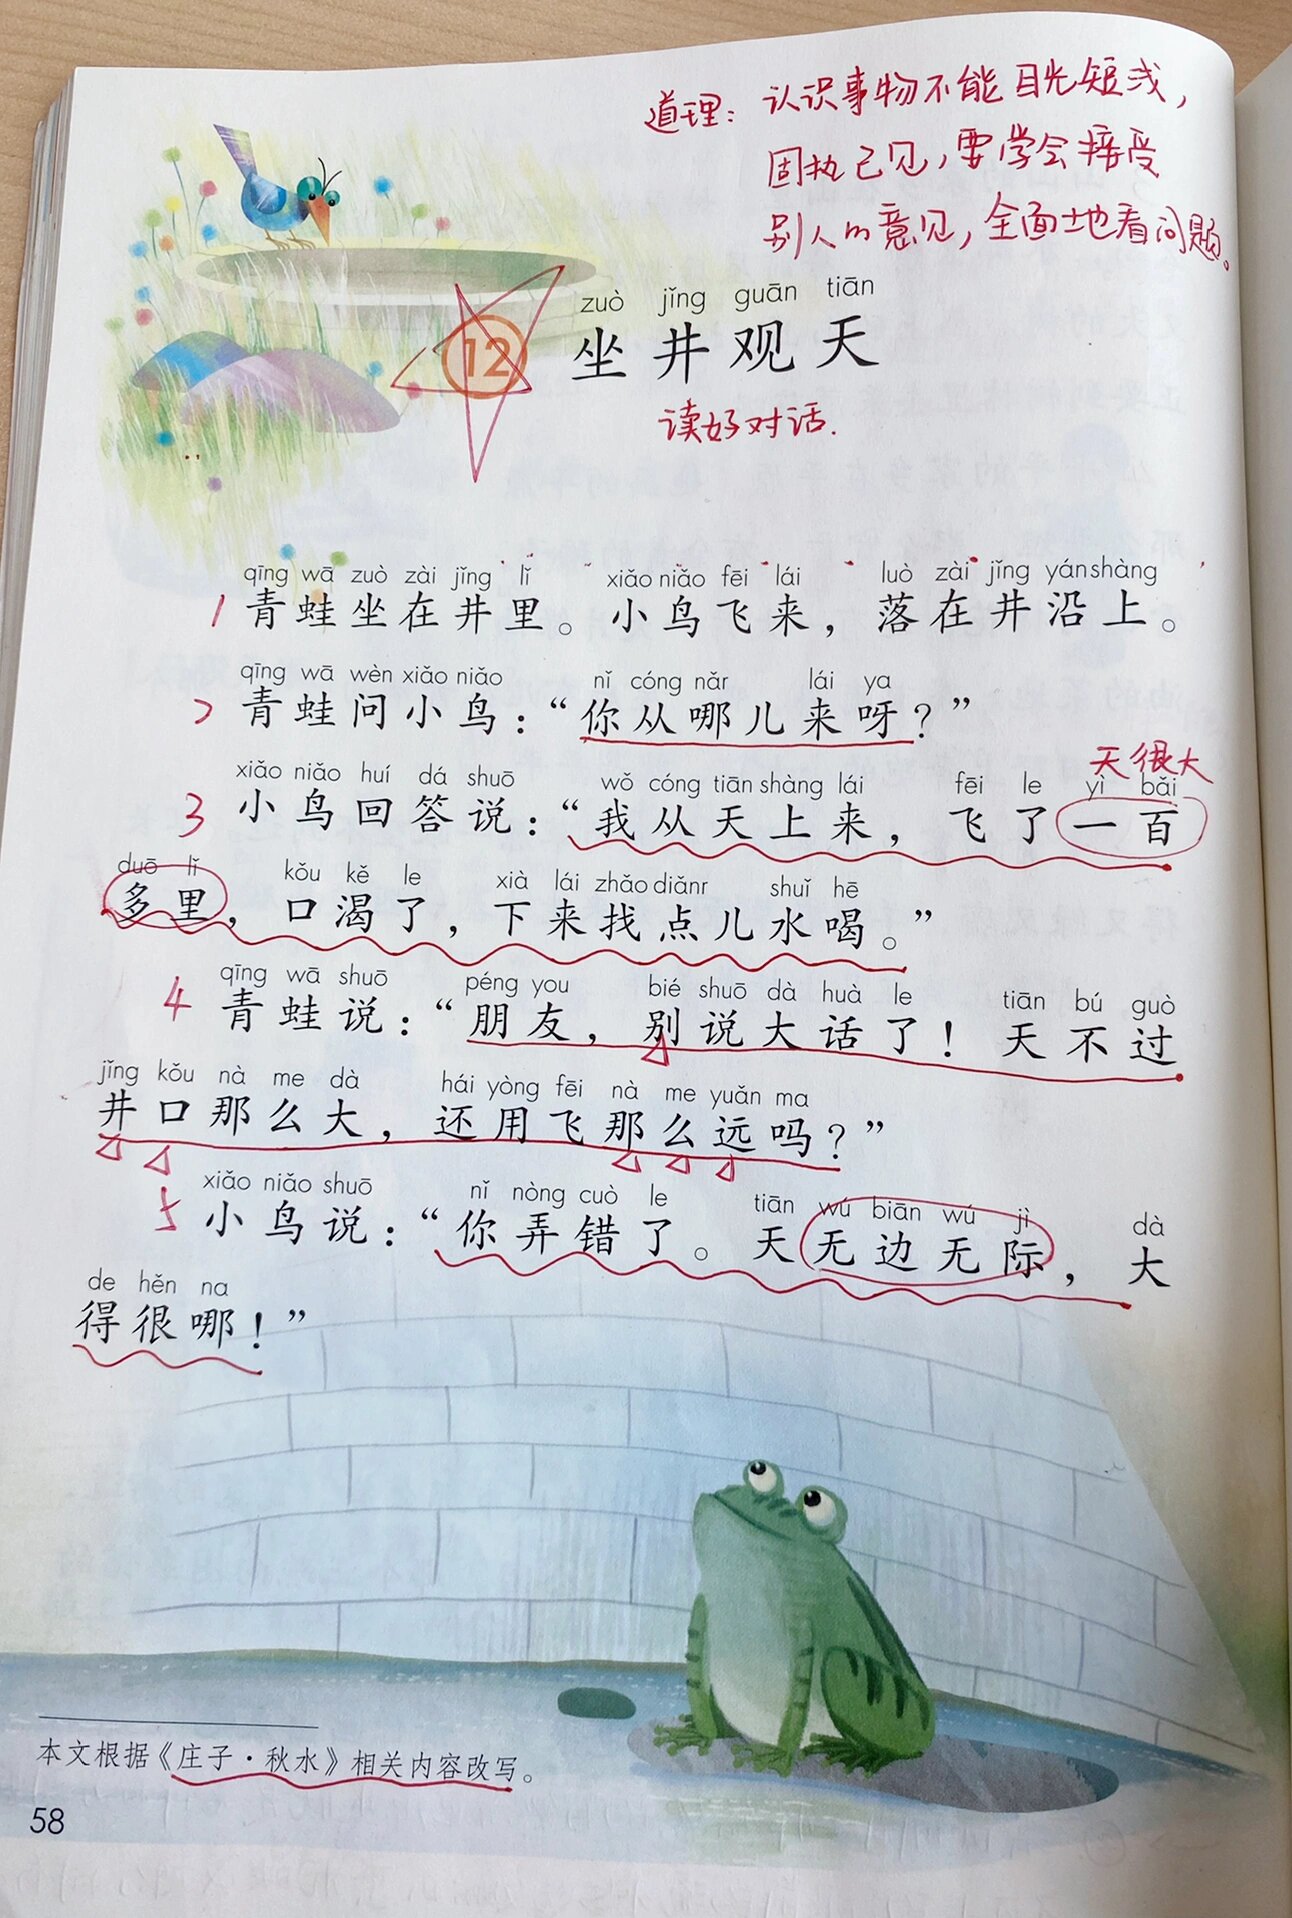 道理：认识事物不能目光短浅，
固执己见，要学会接受
别人的意见，全面地看问题。
zuò jǐng guān tiān
12 坐井观天
读好对话.
qīng wā zuò zài jǐng lǐ xiǎo niǎo fēi lái luò zài jǐng yán shàng
1 青蛙坐在井里。小鸟飞来，落在井沿上。
qīng wā wèn xiǎo niǎo nǐ cóng nǎr lái ya
2 青蛙问小鸟：“你从哪儿来呀？”
天很大
xiǎo niǎo huí dá shuō wǒ cóng tiān shàng lái fēi le yì bǎi
3 小鸟回答说：“我从天上来，飞了一百
duō lǐ kǒu kě le xià lái zhǎo diǎnr shuǐ hē
多里，口渴了，下来找点儿水喝。”
qīng wā shuō péng you bié shuō dà huà le tiān bú guò
4 青蛙说：“朋友，别说大话了！天不过
jǐng kǒu nà me dà hái yòng fēi nà me yuǎn ma
井口那么大，还用飞那么远吗？”
xiǎo niǎo shuō nǐ nòng cuò le tiān wú biān wú jì dà
5 小鸟说：“你弄错了。天无边无际，大
de hěn na
得很哪！”
本文根据《庄子·秋水》相关内容改写。
58